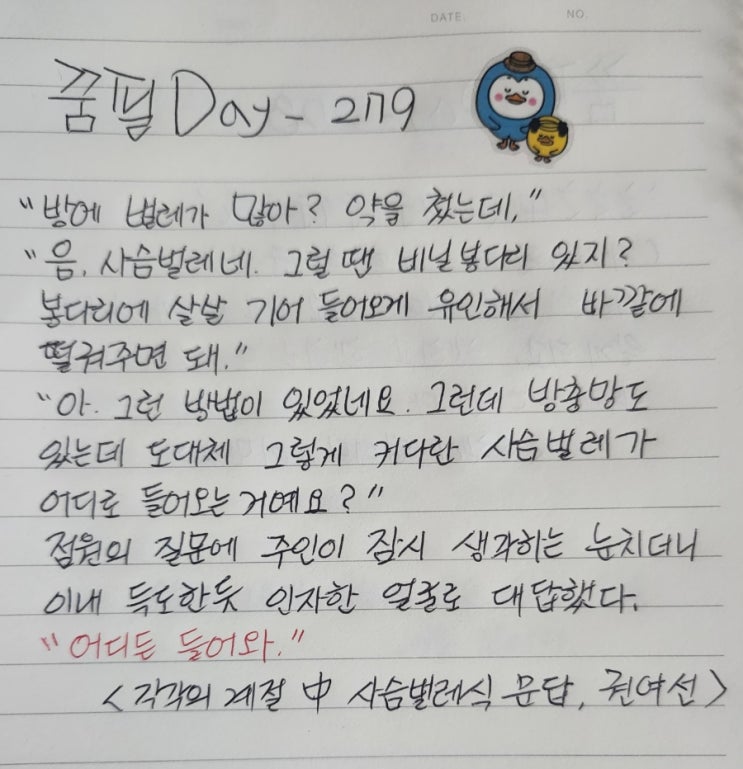 DATE. NO.
꿈필 Day - 279
"방에 벌레가 많아? 약을 쳤는데,"
"음, 사슴벌레네. 그럴 땐 비닐봉다리 있지?
봉다리에 살살 기어 들어오게 유인해서 바깥에
떨궈주면 돼."
"아. 그런 방법이 있었네요. 그런데 방충망도
있는데 도대체 그렇게 커다란 사슴벌레가
어디로 들어오는 거예요?"
점원의 질문에 주인이 잠시 생각하는 눈치더니
이내 득도한듯 인자한 얼굴로 대답했다.
"어디든 들어와."
<각각의 계절 中 사슴벌레식 문답, 권여선>